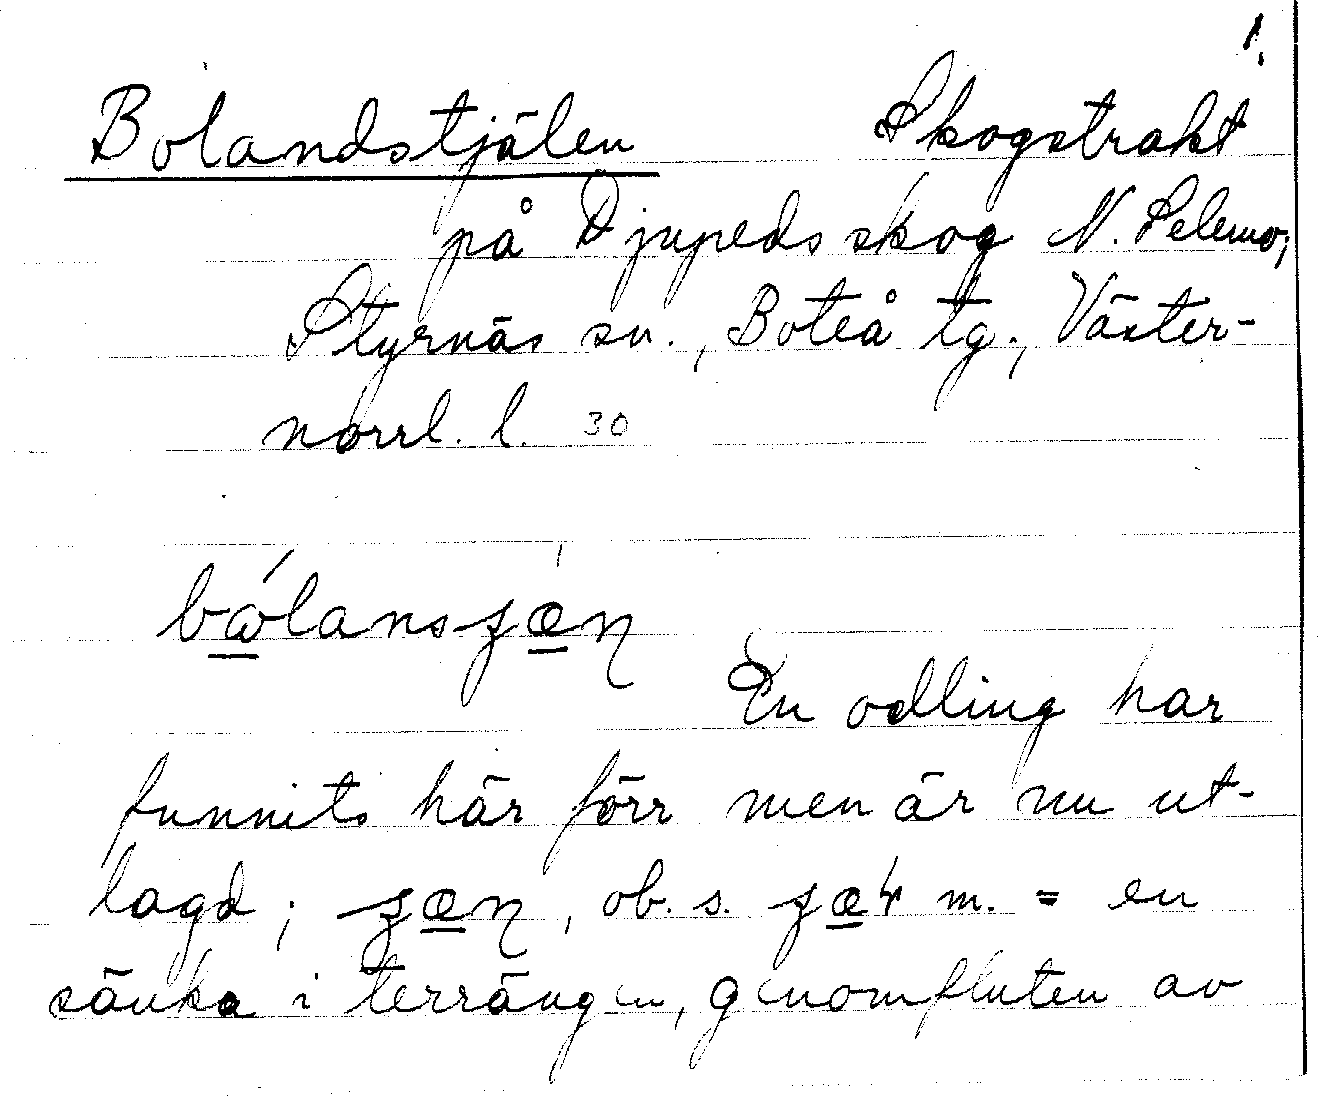 1.
Bolandstjälen Skogstrakt
på Djupedsskog N. Selemo,
Styrnäs sn., Boteå tg., Väster-
norrl. l. 30
En odling har
funnits här förr men är nu ut-
lagd; , ob. s. m. = en
sänka i terrängen, genomfluten av